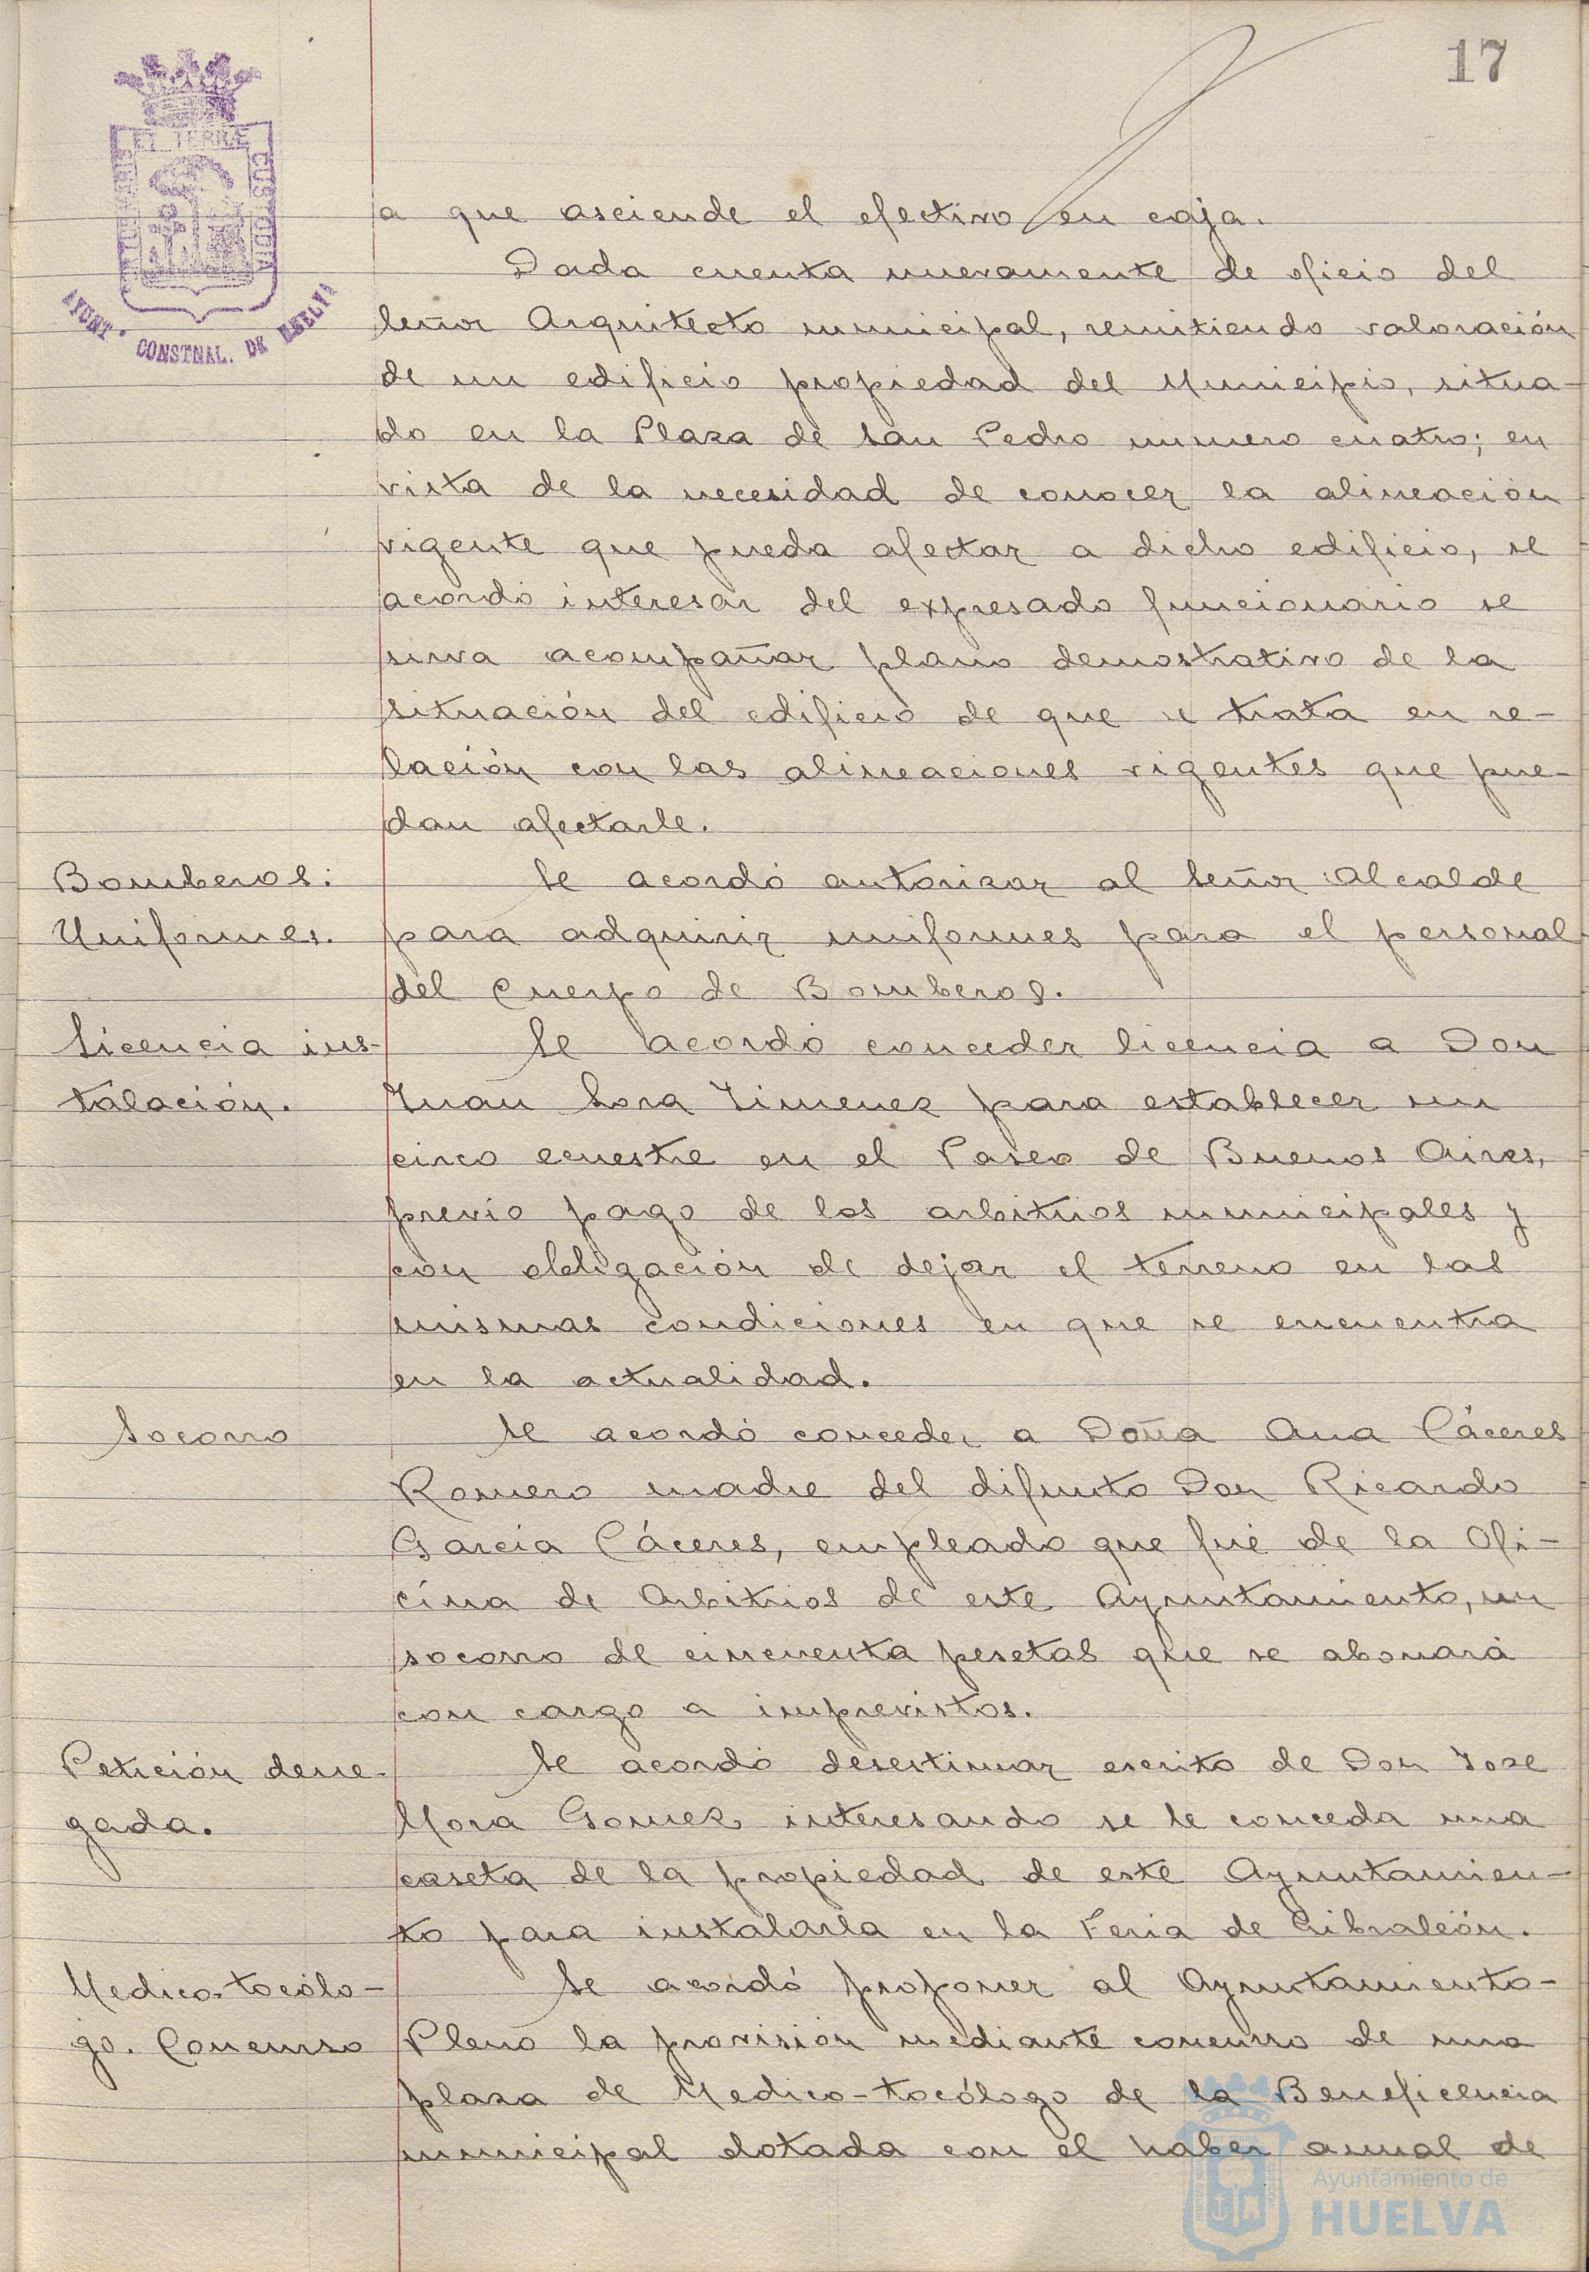 17
ET TERRÆ
CUSTODIA
AYUNT. CONSTNAL. DE HUELVA
a que asciende el efectivo en caja.
Dada cuenta nuevamente de oficio del
Señor Arquitecto municipal, remitiendo valoración
de un edificio propiedad del Municipio, situa-
do en la Plaza de San Pedro numero cuatro; en
vista de la necesidad de conocer la alineación
vigente que pueda afectar a dicho edificio, se
acordó interesar del expresado funcionario se
sirva acompañar plano demostrativo de la
situación del edificio de que se trata en re-
lación con las alineaciones vigentes que pue-
dan afectarle.
Bomberos:
Uniformes.
Se acordó autorizar al Señor Alcalde
para adquirir uniformes para el personal
del Cuerpo de Bomberos.
Licencia ins-
talación.
Se acordó conceder licencia a Don
Juan Lora Jimenez para establecer un
circo ecuestre en el Paseo de Buenos Aires,
previo pago de los arbitrios municipales y
con obligación de dejar el terreno en las
mismas condiciones en que se encuentra
en la actualidad.
Socorro
Se acordó conceder a Doña Ana Cáceres
Romero madre del difunto Don Ricardo
García Cáceres, empleado que fué de la Ofi-
cina de Arbitrios de este Ayuntamiento, un
socorro de cincuenta pesetas que se abonará
con cargo a imprevistos.
Petición dene-
gada.
Se acordó desestimar escrito de Don Jose
Mora Gomez interesando se le conceda una
caseta de la propiedad de este Ayuntamien-
to para instalarla en la Feria de Gibraleón.
Medico-tocólo-
go. Concurso
Se acordó proponer al Ayuntamiento-
Pleno la provisión mediante concurso de una
plaza de Medico-tocólogo de la Beneficencia
municipal dotada con el haber anual de
Ayuntamiento de
HUELVA